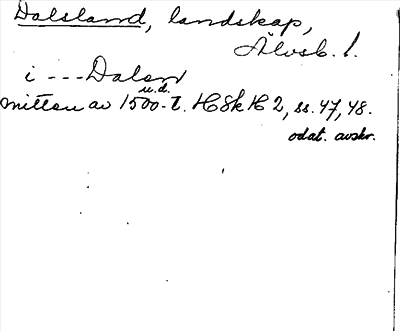 Dalsland, landskap,
Älvsb. l.
i --- Dalen
u.d.
mitten av 1500-t. HSkH 2, ss. 47, 48.
odat. avskr.